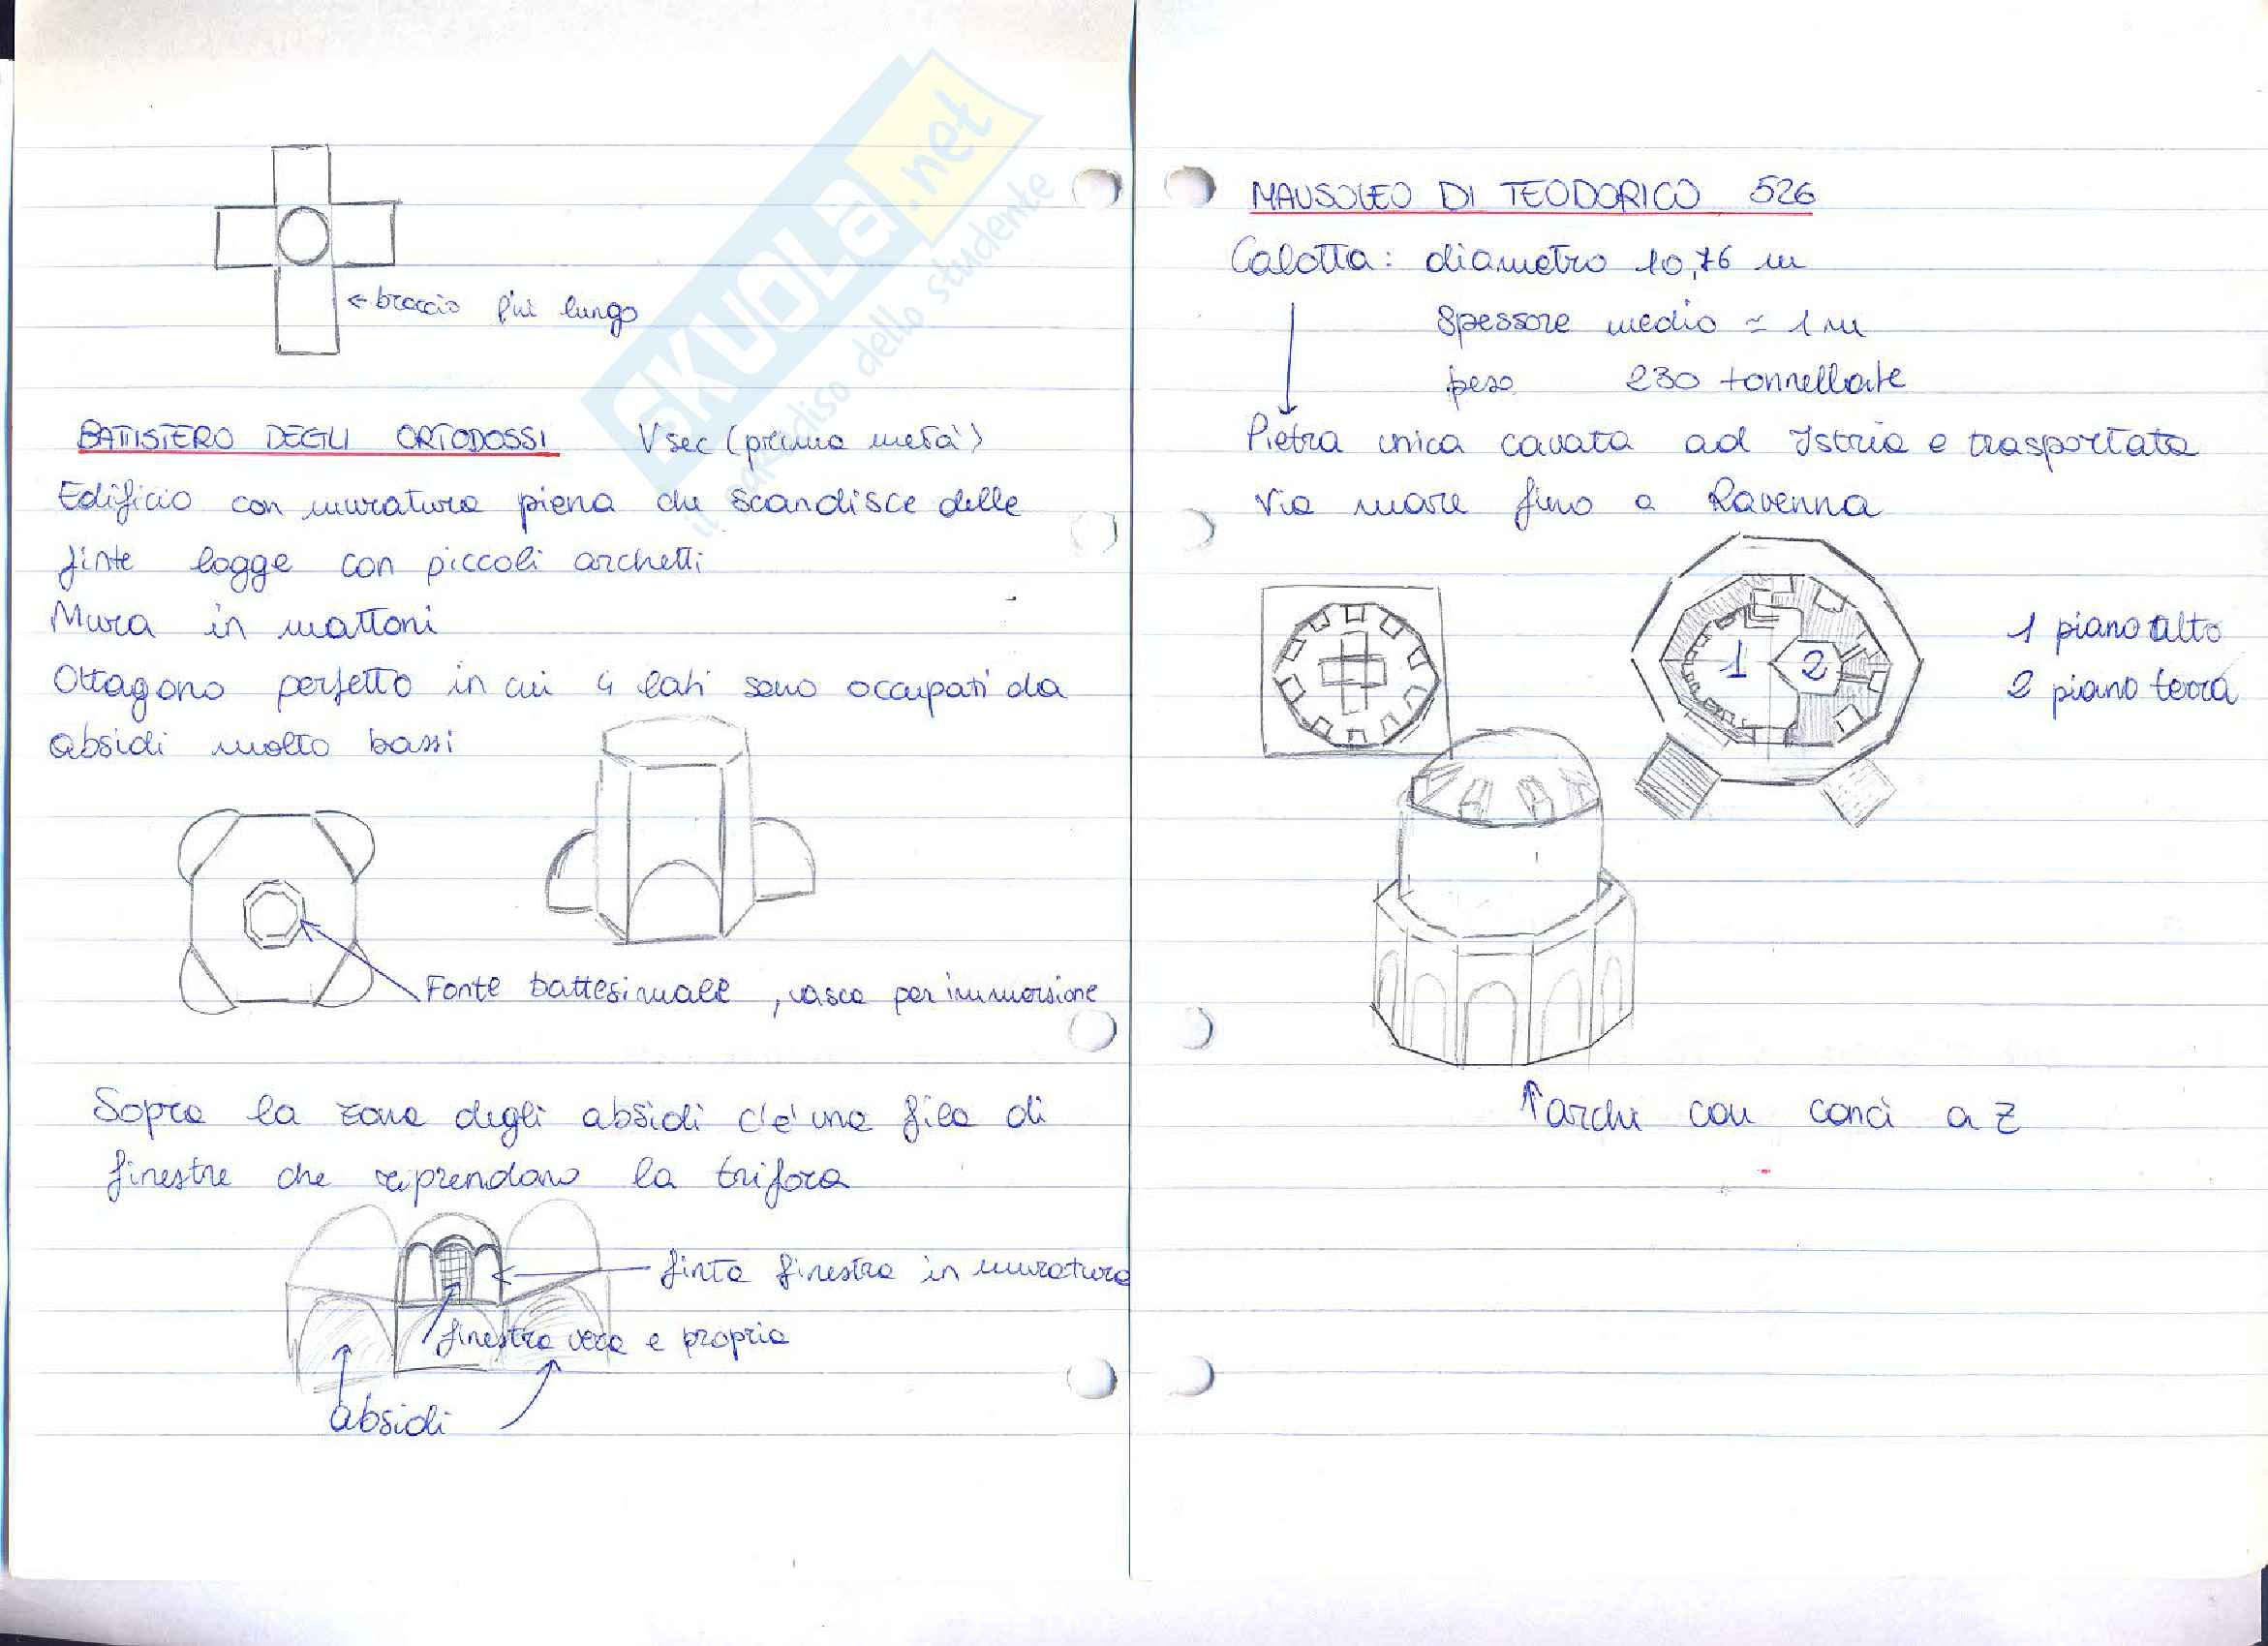 ← braccio più lungo
BATTISTERO DEGLI ORTODOSSI V sec (prima metà)
Edificio con muratura piena che scandisce delle
finte logge con piccoli archetti
Mura in mattoni
Ottagono perfetto in cui 4 lati sono occupati da
absidi molto bassi
Fonte battesimale, vasca per immersione
Sopra la zona degli absidi c'è una fila di
finestre che riprendono la trifora
finta finestra in muratura
finestra vera e propria
absidi
SKUOLA.net
il paradiso dello studente
MAUSOLEO DI TEODORICO 526
Calotta: diametro 10,76 m
spessore medio ≃ 1 m
peso 230 tonnellate
Pietra unica cavata ad Istria e trasportata
via mare fino a Ravenna
1 2
1 piano alto
2 piano terra
↑ archi con conci a Z